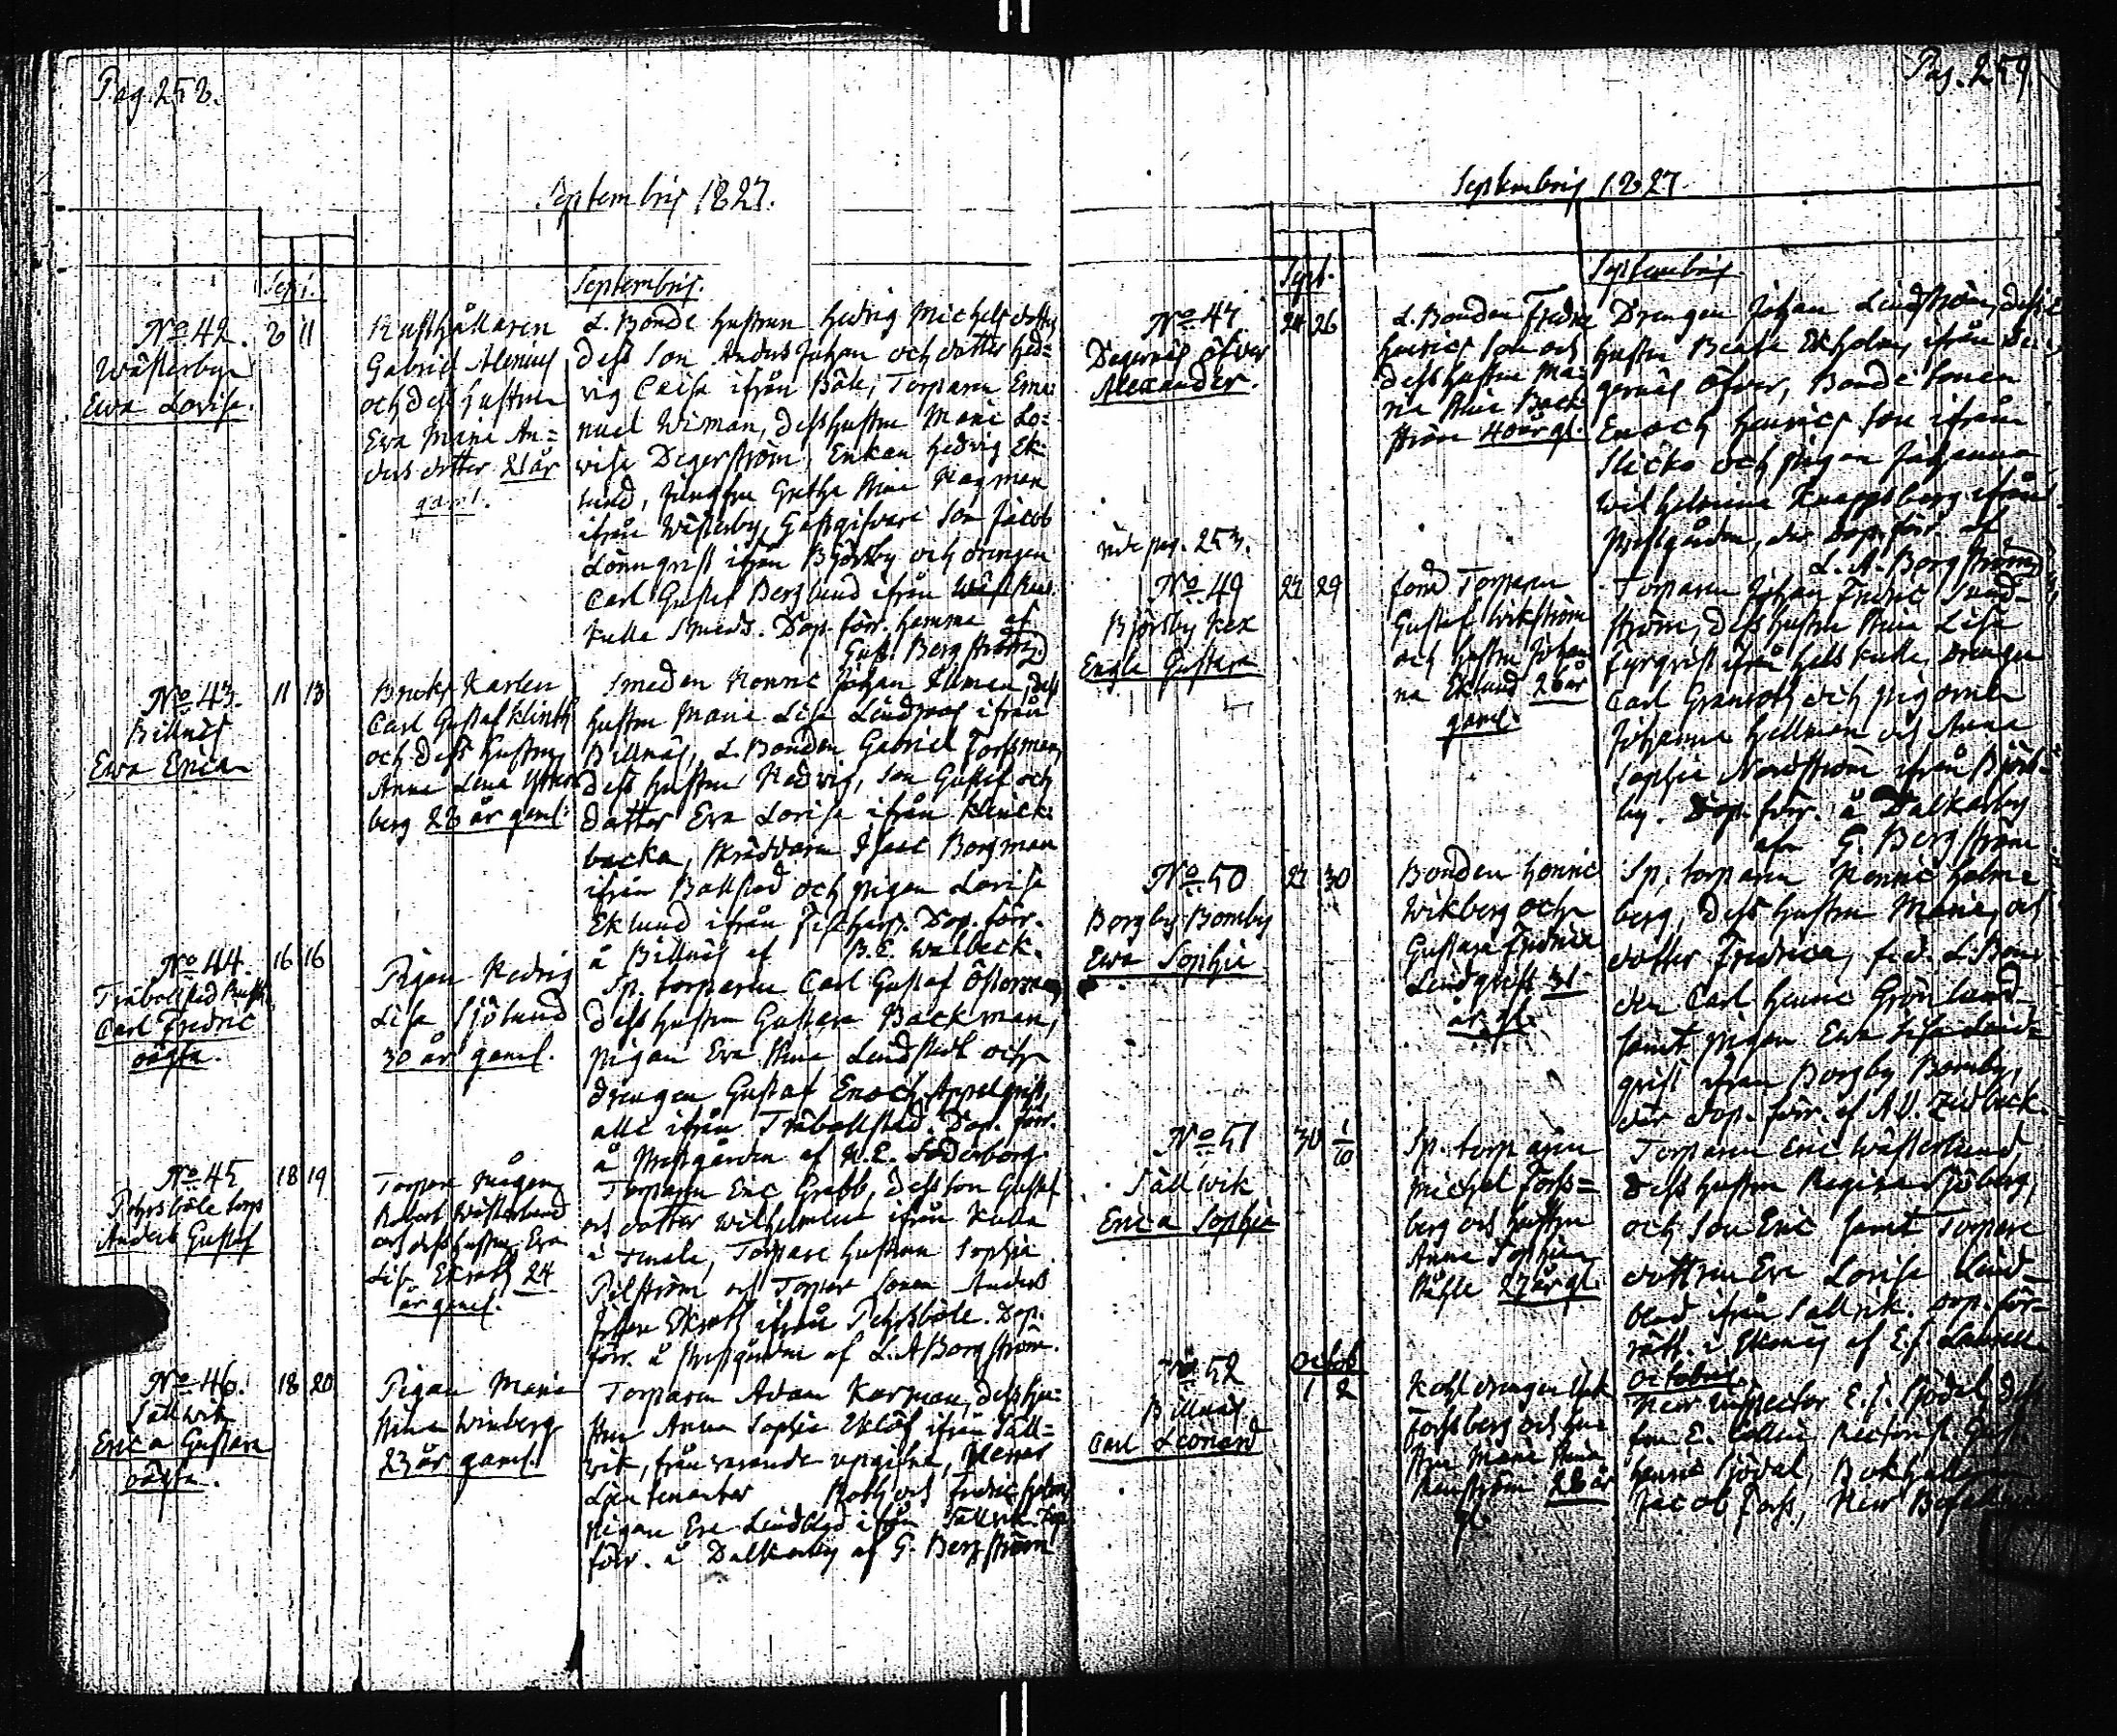 Pag. 258.
Septembris 1827.
Sept.
Septembris.
No 42.
Wästerby
Ewa Lovisa.
8 11
Rusthållaren
Gabriel Alenius
och dess hustru
Eva Maria An=
ders dotter 21 år
gaml.
L. Bonde hustrun Hedvig Michels dotter
dess Son Anders Johan och dotter Hed=
vig Caisa ifrån Böle, Torparen Ema=
nuel Wiman, dess hustru Maria Lo=
visa Degerström, Enkan Hedvig Ek=
lund, Jungfru Gretha Stina Hagman
ifrån Wästerby, Gästgifvare Son Jacob
Lönnqvist ifrån Björsby och drengen
Carl Gustaf Berglund ifrån
Kulla Smeds. Dop. förr. hemma af
Gust. Bergström.
No 43.
Billnäs
Ewa Erica
11 13
Bruks Karlen
Carl Gustaf Klinth
och dess hustru
Anna Lena Ytter
berg 28 år gaml.
Smeden Henric Johan Ekman, dess
hustru Maria Lisa Lindroos ifrån
Billnäs, L. Bonden Gabriel Forssman,
dess hustru Hedvig, son Gustaf och
dotter Eva Lovisa ifrån Klinck=
backa, Skräddaren Isaac Bergman
ifrån Ballstad och pigan Lovisa
Eklund ifrån Fiskars. Dop. förr.
å Billnäs af B. E. Walbeck.
No 44.
Träbollstad Rusth.
Carl Fredric
oägta.
16 16
Pigan Hedvig
Lisa Sjölund
30 år gaml.
Sp. torparen Carl Gustaf Österman,
dess hustru Gustava Backman,
pigan Eva Stina Lindstedt och
drengen Gustaf Enoch Appelqvist,
alla ifrån Träbollstad. Dop. förr.
å Prestgården af N. E. Söderborg.
No 45
Pehrsböle torp
Anders Gustaf
18 19
Torpare mågen
Robert Wästerlund
och dess hustru Eva
Lisa Ekroth 24
år gaml.
Torparen Eric Grabb, dess son Gustaf
och dotter Wilhelmina ifrån Kulla
i Tenala, Torpare hustrun Sophia
Pilström och Torpar sonen Anders
Johan Ekroth ifrån Pehrsböle. Dop.
förr. å Prestgården af L. A. Borgström.
No 46.
Sällwik
Erica Gustava
oägta.
18 20
Pigan Maria
Stina Winberg
23 år gaml.
Torparen Adam Karman, dess hu=
stru Anna Sophia Eklöf ifrån Säll=
vik, frånvarande uppgifne, Herrar
Lieutenanter Roth och Fredric Holm,
pigan Eva Lindblad ifrån Sällvik. Dop.
förr. å Dalkarby af G. Bergström
Pag. 259.
Septembris 1827.
Sept.
Septembris
No 47.
Degernäs Öfver
Alexander.
24 26
L. Bonden Fredric
Henrics Son och
dess hustru Ma=
ria Stina Back
ström 40 år gl.
Drengen Johan Lindström, dess
hustru Beata Ekholm ifrån De=
gernäs Öfver, Bonde sonen
Enoch Henrics Son ifrån
Slicko och pigan Johanna
Wilhelmina Knappsberg ifrån
Prestgården, der dop. förr. af
L. A. Borgström
vide pag. 253.
No 49
Björsby Kex
Engla Gustava
27 29
Torparen
Gustaf Wikström
och hustru Johan
na Eklund 26 år
gaml.
Torparen Johan Fredric Sund=
ström, dess hustru Stina Lisa
Fyrqvist ifrån Hels Kulla, drengen
Carl Granroth och pigorna
Johanna Hellman och Anna
Sophia Nordström ifrån Björs=
by. Dop. förr. å Dalkarby
af G. Bergström
No 50
Borgby Bomby
Ewa Sophia
27 30
Bonden Henric
Wikberg och
Gustava Fredrica
Lindqvist 31
år gl.
Sp. torparen Henric Holm=
berg, dess hustru Maria, och
dotter Fredrica, L. Bon=
den Carl Henric Grönlund
samt pigan Ewa Lisa Lind=
qvist ifrån Borgby Bomby,
där dop. förr. af A. V. Zidbeck.
No 51
Sällwik
Erica Sophia
30 1/10
Sp. torparen
Michel Forss=
berg och hustru
Anna Sophia
Ståhle 27 år gl.
Torparen Eric Wästerlund,
dess hustru Regina Sjöberg,
och son Eric samt Torpare
dottren Eva Lovisa Lind=
blad ifrån Sällvik. Dop. för=
rätt. i Ekenäs af E. J.
Octob
Octobris.
No 52
Billnäs
Carl Leonard
1 2
Kohl drengen Erik
Forssberg och hu
stru Maria Stina
Renström 28 år
gl.
Herr Inspector E. J. Sjödal, dess
fru E. Collin,
Henric Sjödal, Bokhållaren
Jacob Forss, Herr